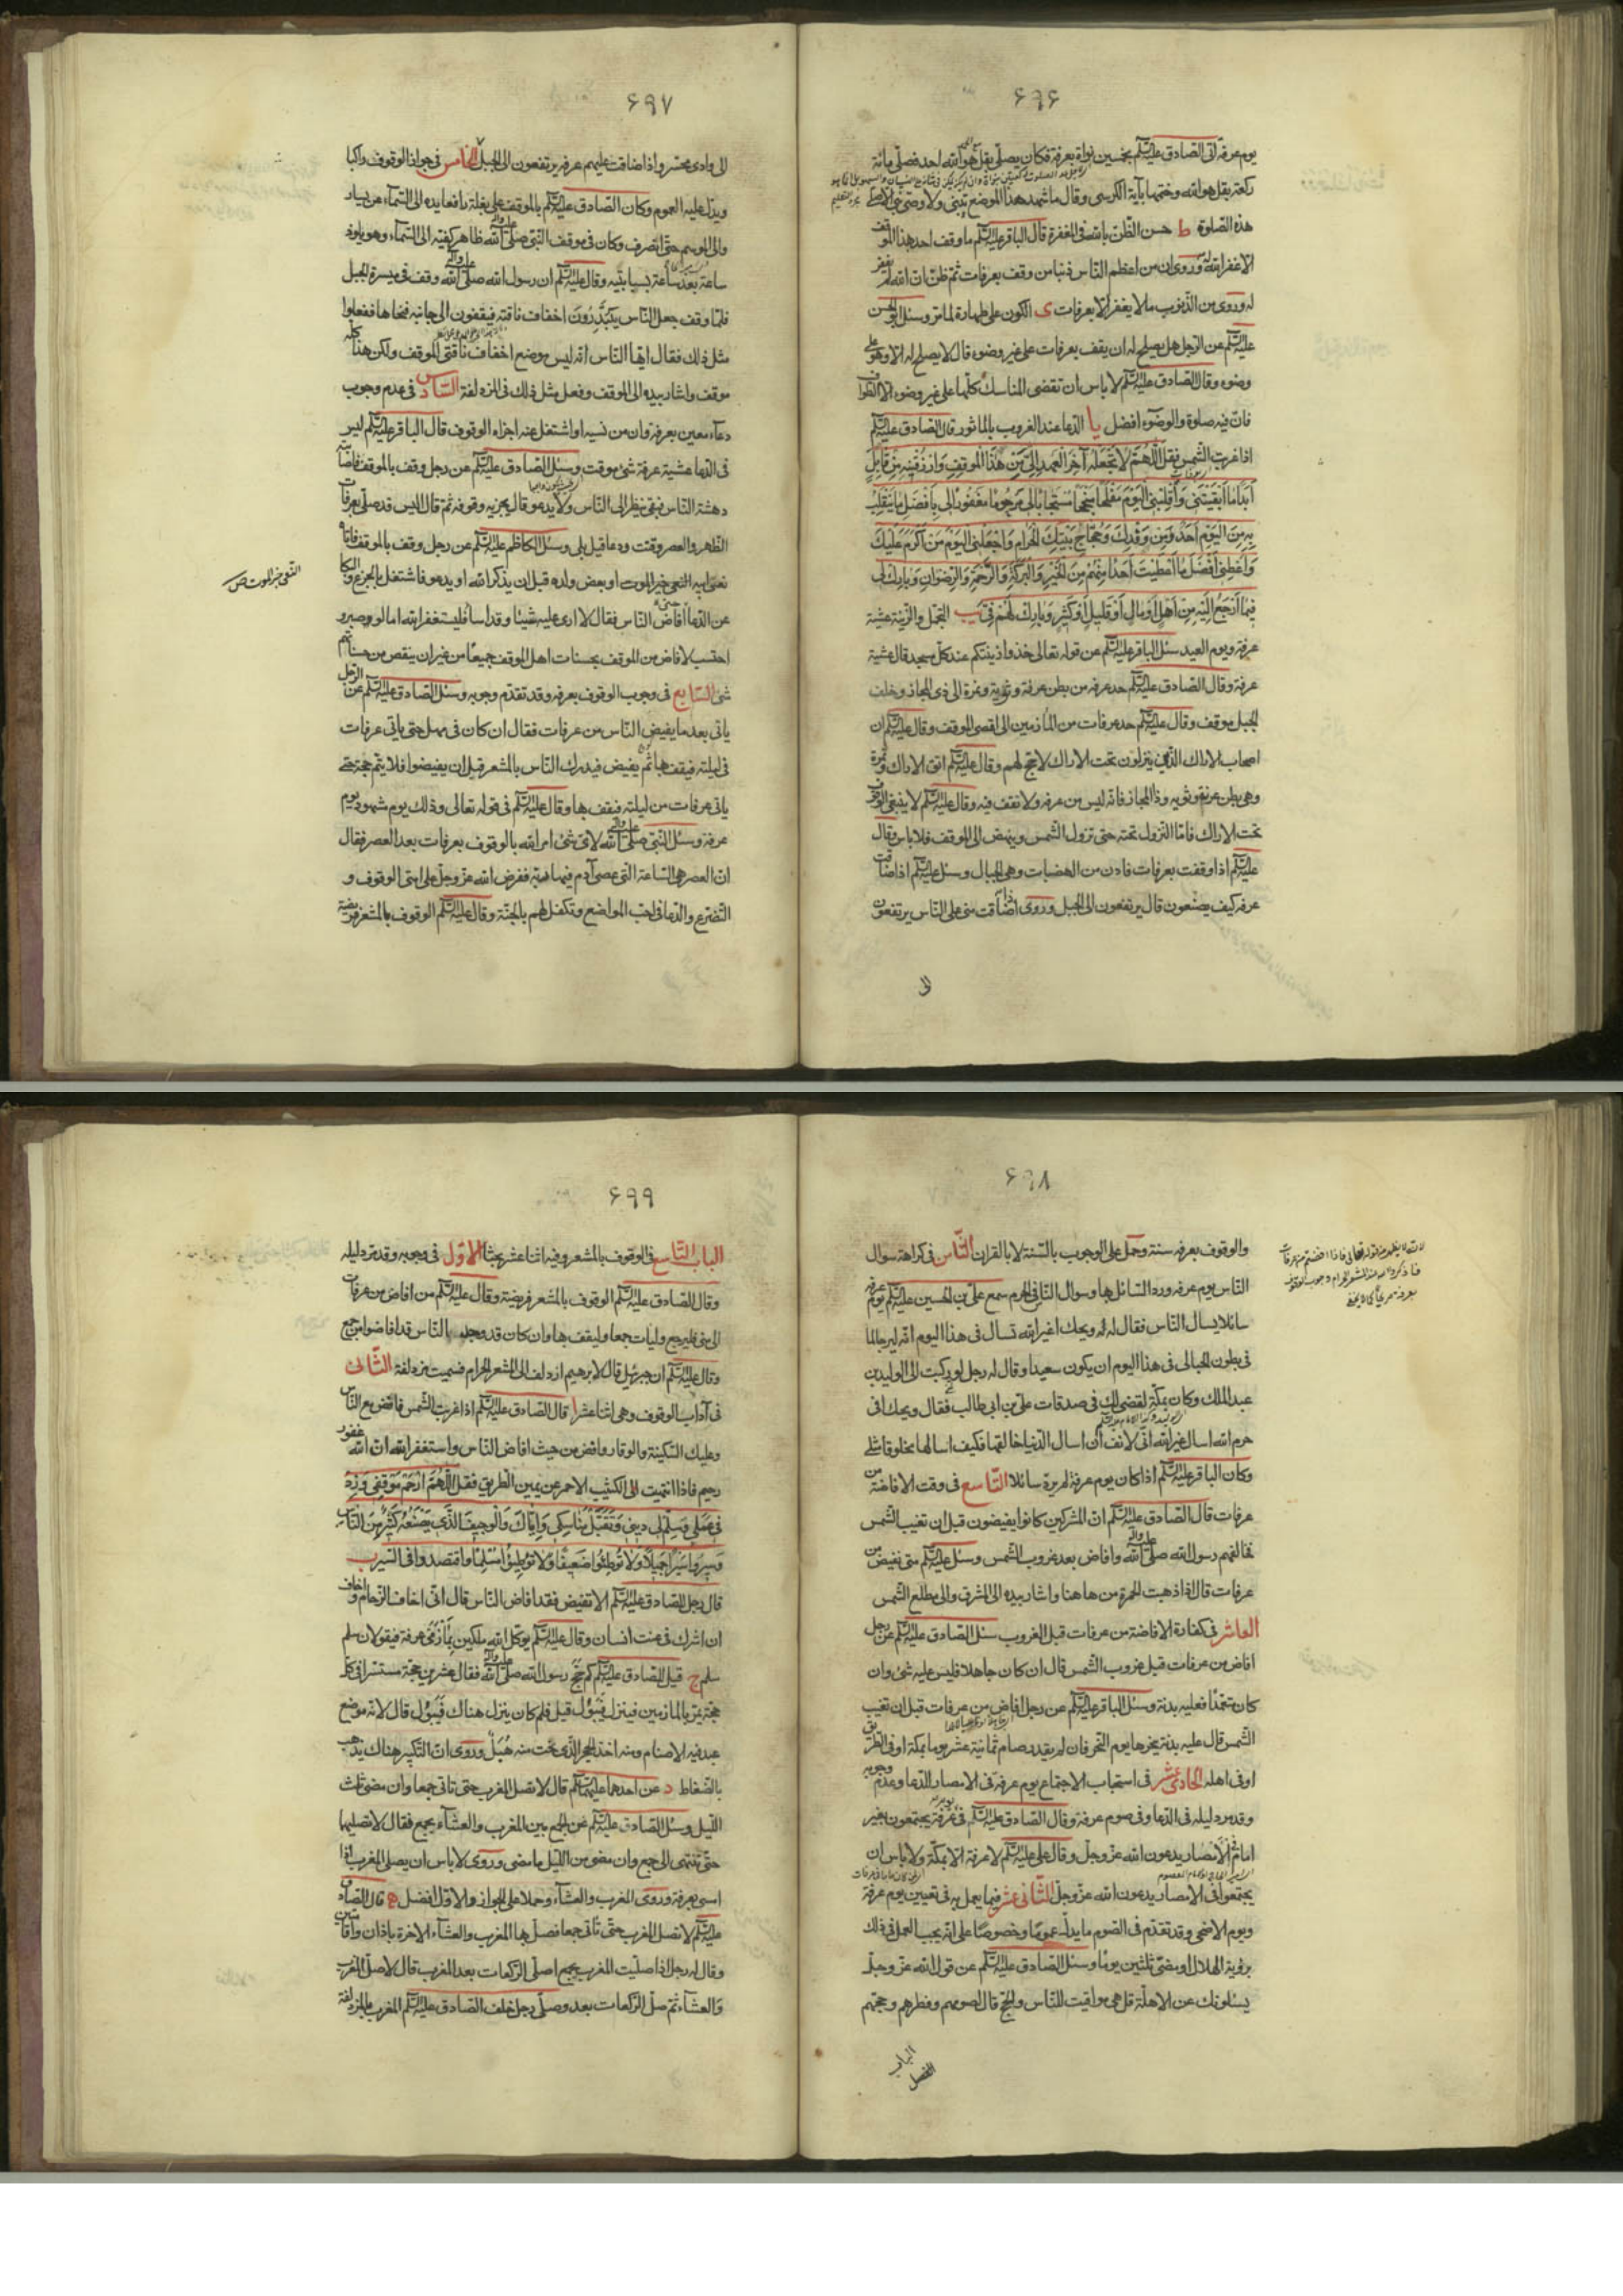 ۶۹۶
يوم عرفة اتى الصادق عليه السلم بخمسين نواة بعرفة فكان يصلى بقل هو الله احد فصلى مائة
ركعة بقل هو الله وختمها بآية الكرسى وقال ما شهد هذا الموضع نبى ولا وصى نبى الا صلى
هذه الصلوة ط حسن الظن بالله فى المغفرة قال الباقر عليه السلم ما وقف احد بهذا الموقف
الا غفر الله له وروى ان من اعظم الناس ذنبا من وقف بعرفات ثم ظن ان الله لم يغفر
له وروى من الذنوب ما لا يغفر الا بعرفات ى الكون على طهارة لما مر وسئل ابو الحسن
عليه السلم عن الرجل هل يصلح له ان يقف بعرفات على غير وضوء قال لا يصلح له الا وهو على
وضوء وقال الصادق عليه السلم لا باس ان تقضى المناسك كلها على غير وضوء الا الطواف
فان فيه صلوة والوضوء افضل يا الدعا عند الغروب بالماثور قال الصادق عليه السلم
اذا غربت الشمس فقل اللهم لا تجعله آخر العهد الى من هذا الموقف وارزقنيه من قابل
ابدا ما ابقيتنى واقلبنى اليوم مفلحا منجحا مستجابا لى مرحوما مغفورا لى بافضل ما ينقلب
به من اليوم احد من وفدك وحجاج بيتك الحرام واجعلنى اليوم من اكرم عليك
واعطنى افضل ما اعطيت احدا منهم من الخير والبركة والرحمة والرضوان وبارك لى
فيما ارجع اليه من اهل او مال او قليل او كثير وبارك لهم فى يب التجمل والزينة عشية
عرفة ويوم العيد سئل الباقر عليه السلم عن قوله تعالى خذوا زينتكم عند كل مسجد قال عشية
عرفة وقال الصادق عليه السلم حد عرفه من بطن عرنة وثوية ونمرة الى ذى المجاز وخلف
الجبل موقف وقال عليه السلم حد عرفات من المأزمين الى اقصى الموقف وقال عليه السلم ان
اصحاب الاراك الذين ينزلون تحت الاراك لا حج لهم وقال عليه السلم اتق الاراك ونمرة
وهى بطن عرنة وثويه وذا المجاز فانه ليس من عرفة ولا تقف فيه وقال عليه السلم لا ينبغى الوقوف
تحت الاراك فاما النزول تحته حتى تزول الشمس وينهض الى الموقف فلا باس وقال
عليه السلم اذا وقفت بعرفات فادن من الهضبات وهى الجبال وسئل عليه السلم اذا ضاقت
عرفه كيف يصنعون قال يرتفعون الى الجبل وروى اذا ضاقت منى على الناس يرتفعون
الى
۶۹۷
الى وادى محسر واذا ضاقت عليهم عرفه يرتفعون الى الجبل الخامس فى جواز الوقوف راكبا
ويدل عليه العموم وكان الصادق عليه السلم بالموقف على بغلة رافعا يده الى السماء عن يسار
والى الموسم حتى انصرف وكان فى موقف النبى صلى الله عليه وآله ظاهر كفيه الى السماء وهو يلوذ
ساعة بعد ساعة بسبابتيه وقال عليه السلم ان رسول الله صلى الله عليه وآله وقف فى ميسرة الجبل
فلما وقف جعل الناس يبتدرون اخفاف ناقته فيقفون الى جانبه فنحاها ففعلوا
مثل ذلك فقال ايها الناس انه ليس موضع اخفاف ناقتى الموقف ولكن هذا كله
موقف واشار بيده الى الموقف وفعل مثل ذلك فى المزدلفة السادس فى عدم وجوب
دعاء معين بعرفة وان من نسيه او اشتغل عنه اجزاه الوقوف قال الباقر عليه السلم ليس
فى الدعا عشية عرفة شئ موقت وسئل الصادق عليه السلم عن رجل وقف بالموقف فاصابته
دهشة الناس فبقى ينظر الى الناس ولا يدعو قال يجزيه وقوفه ثم قال اليس قد صلى بعرفات
الظهر والعصر وقنت ودعا قيل بلى وسئل الكاظم عليه السلم عن رجل وقف بالموقف فاتاه
نعى ابيه او بعض ولده قبل ان يذكر الله او يدعو فاشتغل بالجزع والبكا
عن الدعا حتى افاض الناس فقال لا ارى عليه شيئا وقد اساء فليستغفر الله اما لو صبر و
احتسب لافاض من الموقف بحسنات اهل الموقف جميعا من غير ان ينقص من حسناتهم
شئ السابع فى وجوب الوقوف بعرفه وقد تقدم وجوبه وسئل الصادق عليه السلم عن الرجل
ياتى بعد ما يفيض الناس من عرفات فقال ان كان فى مهل حتى ياتى عرفات
فى ليلته فيقف بها ثم يفيض فيدرك الناس بالمشعر قبل ان يفيضوا فلا يتم حجه حتى
ياتى عرفات من ليلته فيقف بها وقال عليه السلم فى قوله تعالى وذلك يوم مشهود يوم
عرفة وسئل النبى صلى الله عليه وآله لاى شئ امر الله بالوقوف بعرفات بعد العصر فقال
ان العصر هى الساعة التى عصى آدم فيها ربه ففرض الله عز وجل على امتى الوقوف و
التضرع والدعا فى احب المواضع وتكفل لهم بالجنة وقال عليه السلم الوقوف بالمشعر فريضة
۶۹۸
والوقوف بعرفه سنة وحمل على الوجوب بالسنة لا بالقران الثامن فى كراهة سوال
الناس يوم عرفه ورد السائل بها وسوال الناس فى الحرم سمع على بن الحسين عليه السلم يوم عرفة
سائلا يسال الناس فقال له ويحك اغير الله تسال فى هذا اليوم انه ليرجا لما
فى بطون الحبالى فى هذا اليوم ان يكون سعيدا وقال له رجل لو ركبت الى الوليد بن
عبد الملك وكان بمكة لقضى لك فى صدقات على بن ابى طالب فقال ويحك افى
حرم الله اسال غير الله انى لانف ان اسال الدنيا خالقها فكيف اسالها مخلوقا مثلى
وكان الباقر عليه السلم اذا كان يوم عرفة لم يرد سائلا التاسع فى وقت الافاضة من
عرفات قال الصادق عليه السلم ان المشركين كانوا يفيضون قبل ان تغيب الشمس
فخالفهم رسول الله صلى الله عليه وآله وافاض بعد غروب الشمس وسئل عليه السلم متى نفيض من
عرفات قال اذا ذهبت الحمرة من هاهنا واشار بيده الى المشرق والى مطلع الشمس
العاشر فى كفارة الافاضة من عرفات قبل الغروب سئل الصادق عليه السلم عن رجل
افاض من عرفات قبل غروب الشمس قال ان كان جاهلا فليس عليه شئ وان
كان متعمدا فعليه بدنة وسئل الباقر عليه السلم عن رجل افاض من عرفات قبل ان تغيب
الشمس قال عليه بدنة ينحرها يوم النحر فان لم يقدر صام ثمانية عشر يوما بمكة او فى الطريق
او فى اهله الحادى عشر فى استحباب الاجتماع يوم عرفة فى الامصار للدعا وعدم وجوبه
وقد مر دليله فى الدعا وفى صوم عرفة وقال الصادق عليه السلم فى يوم عرفة يجتمعون بغير
امام فى الامصار يدعون الله عز وجل وقال على عليه السلم لا عرفة الا بمكة ولا باس ان
يجتمعوا فى الامصار يدعون الله عز وجل الثانى عشر فيما يعمل به فى تعيين يوم عرفة
ويوم الاضحى وقد تقدم فى الصوم ما يدل عموما وخصوصا على انه يجب العمل فى ذلك
برؤية الهلال او مضى ثلثين يوما وسئل الصادق عليه السلم عن قول الله عز وجل
يسئلونك عن الاهلة قل هى مواقيت للناس والحج قال لصومهم وفطرهم وحجهم
الباب
۶۹۹
الباب التاسع فى الوقوف بالمشعر وفيه اثنا عشر بحثا الاول فى وجوبه وقد مر دليله
وقال الصادق عليه السلم الوقوف بالمشعر فريضة وقال عليه السلم من افاض من عرفات
الى منى فليرجع وليات جمعا وليقف بها وان كان قد وجد الناس قد افاضوا من جمع
وقال عليه السلم ان جبرئيل قال لابرهيم ازدلف الى المشعر الحرام فسميت مزدلفة الثانى
فى آداب الوقوف وهى اثنا عشر ا قال الصادق عليه السلم اذا غربت الشمس فافض مع الناس
وعليك السكينة والوقار وافض من حيث افاض الناس واستغفر الله ان الله غفور
رحيم فاذا انتهيت الى الكثيب الاحمر عن يمين الطريق فقل اللهم ارحم موقفى وزد
فى عملى وسلم لى دينى وتقبل مناسكى واياك والوجيف الذى يصنعه كثير من الناس
وسيروا سيرا جميلا ولا توطئوا ضعيفا ولا توطئوا مسلما واقتصدوا فى السير ب
قال رجل للصادق عليه السلم الا تفيض فقد افاض الناس قال انى اخاف الزحام واخاف
ان اشرك فى عنت انسان وقال عليه السلم يوكل الله ملكين بمأزمى عرفة فيقولان سلم
سلم ج قيل للصادق عليه السلم كم حج رسول الله صلى الله عليه وآله فقال عشرين حجة مستسرا فى كل
حجة يمر بالمازمين فينزل فيبول قيل فلم كان ينزل هناك فيبول قال لانه موضع
عبد فيه الاصنام ومنه اخذ الحجر الذى نحت منه هبل وروى ان التكبير هناك يذهب
بالضغاط د عن احدهما عليهما السلم قال لا تصل المغرب حتى تاتى جمعا وان مضى ثلث
الليل وسئل الصادق عليه السلم عن الجمع بين المغرب والعشاء بجمع فقال لا تصليهما
حتى تنتهى الى جمع وان مضى من الليل ما مضى وروى لا باس ان يصلى المغرب اذا
امسى بعرفة وروى المغرب والعشاء وحملا على الجواز والاول افضل ه قال الصادق
عليه السلم لا تصل المغرب حتى تاتى جمعا فصل بها المغرب والعشاء الاخرة باذان واقامتين
وقال له رجل اذا صليت المغرب بجمع اصلى الركعات بعد المغرب قال لا صل المغرب
والعشاء ثم صل الركعات بعد وصلى رجل خلف الصادق عليه السلم المغرب بالمزدلفة